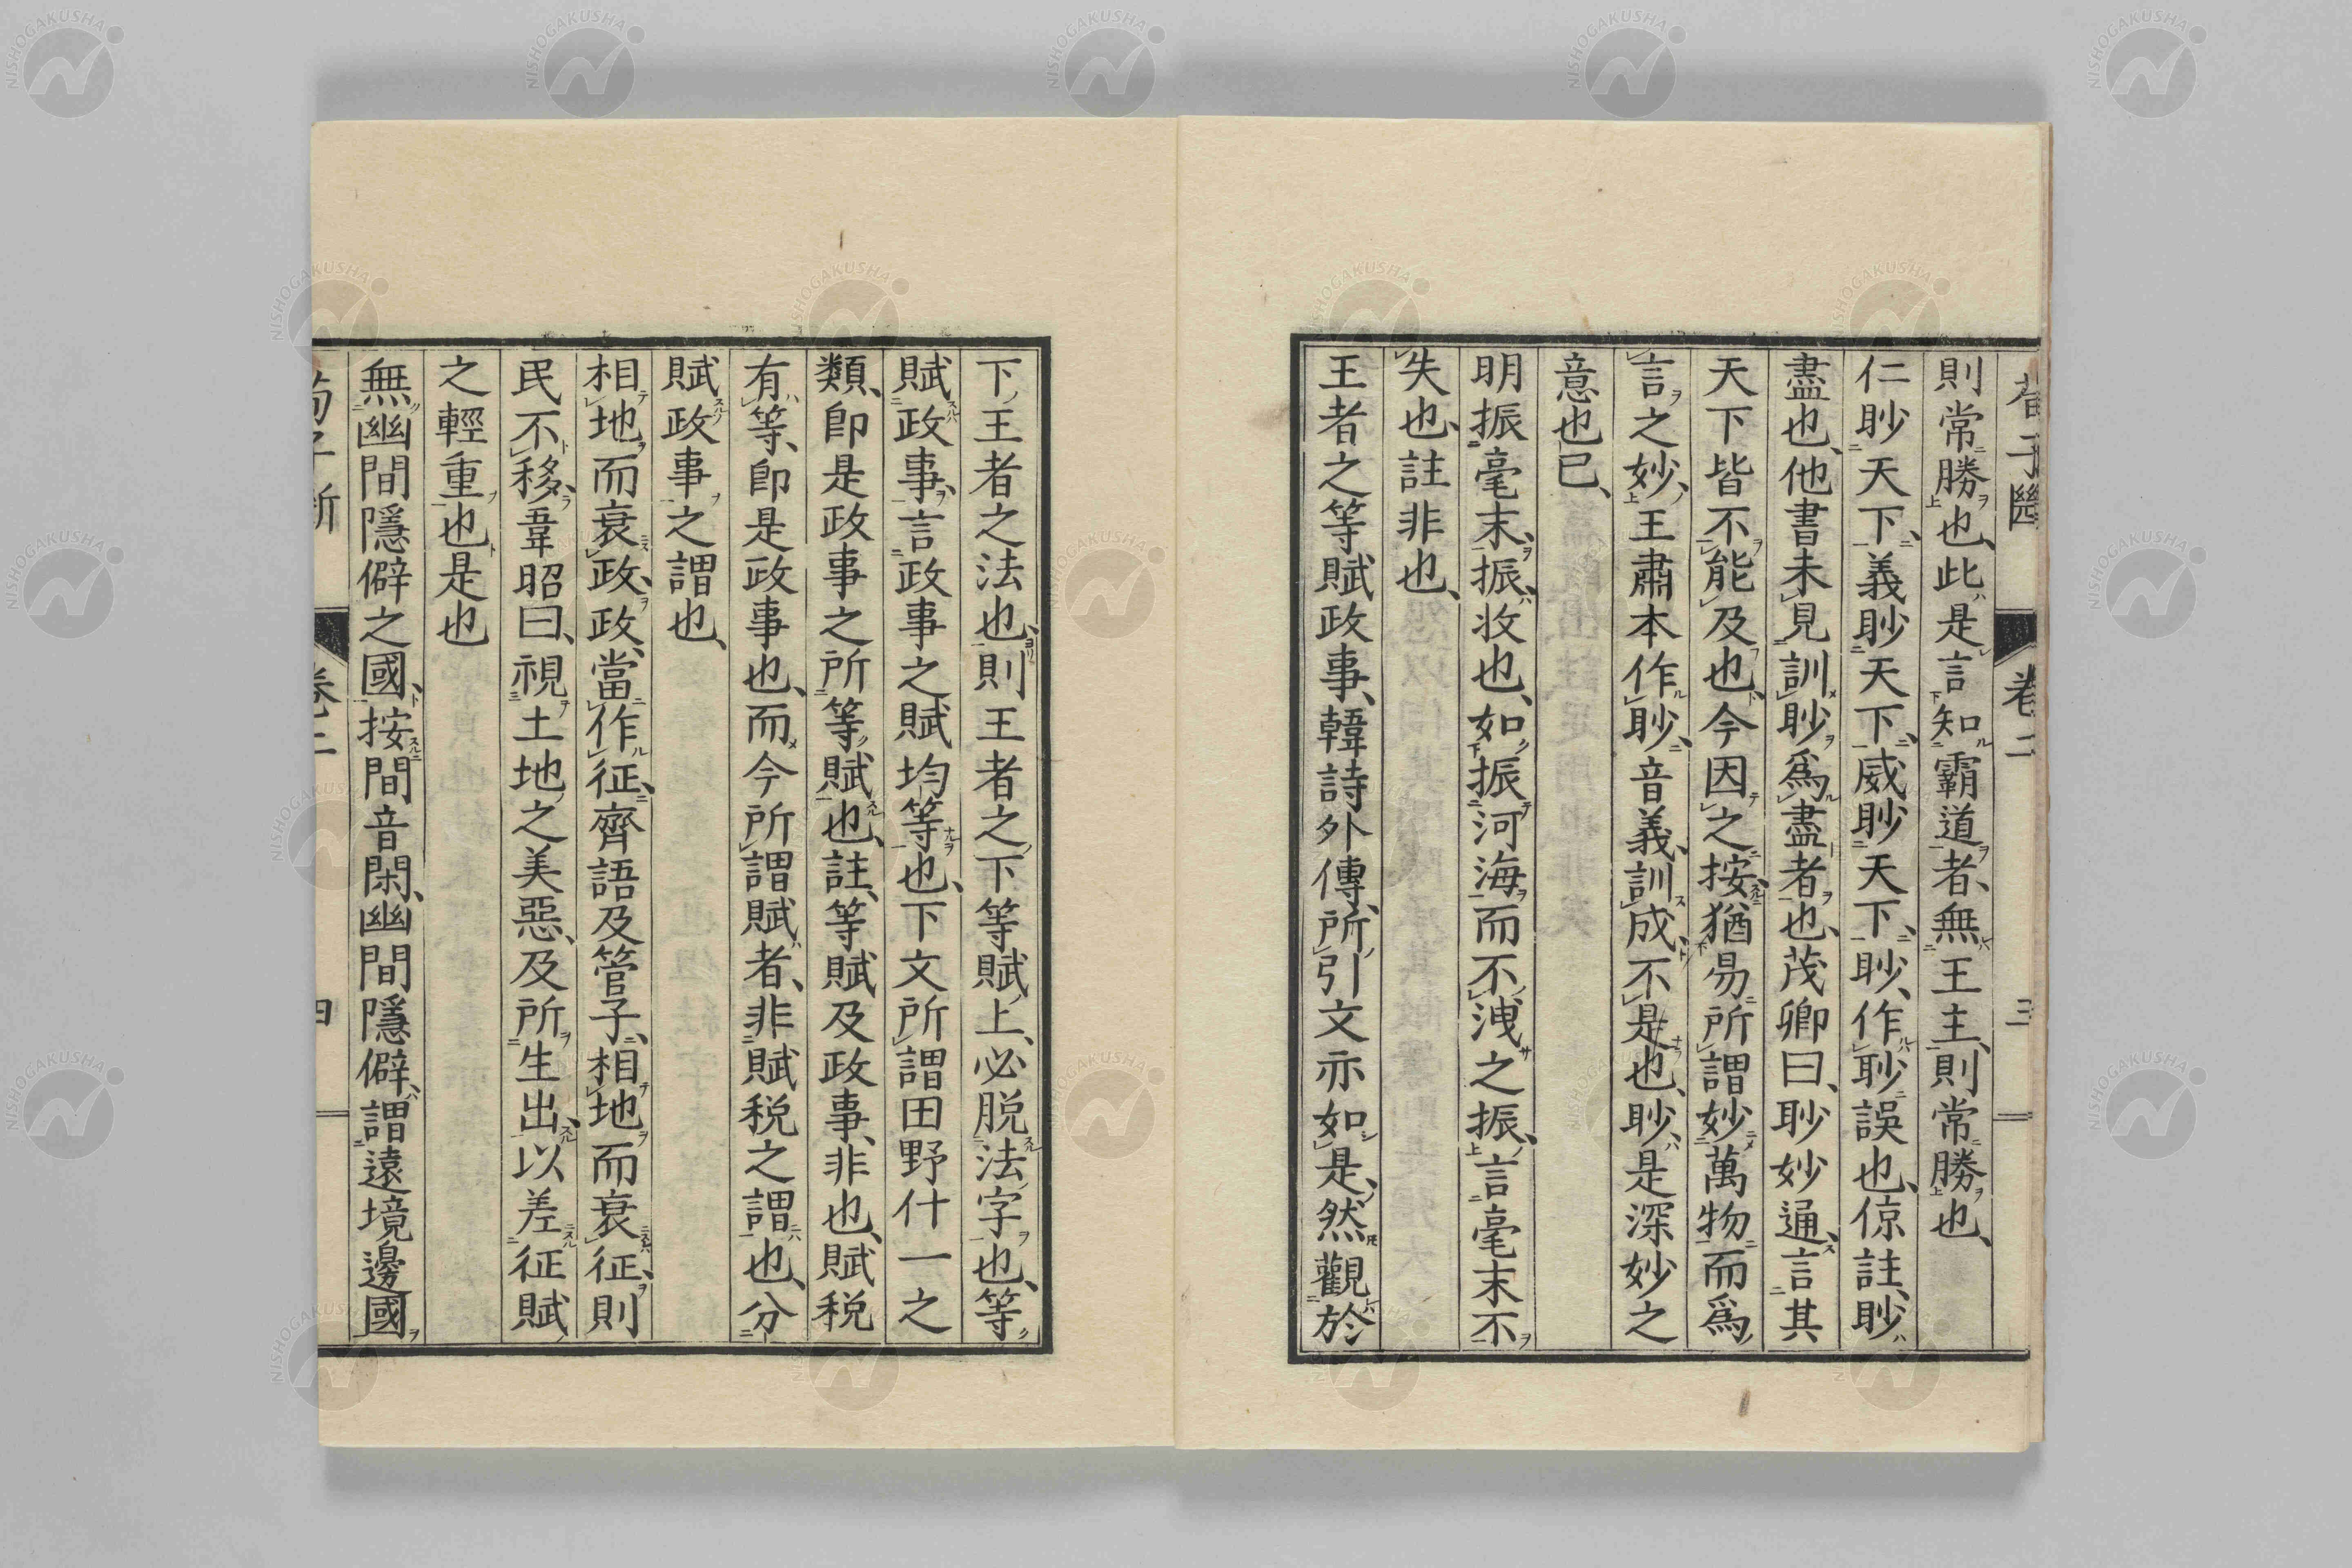 則常勝也、此是言知霸道者、無王主、則常勝也、
仁眇天下、義眇天下、威眇天下、眇、作眇誤也、倞註、眇
盡也、他書未見訓眇爲盡者也、茂卿曰、眇妙通、言其
天下皆不能及也、今因之、按、猶易所謂妙萬物而爲
言之妙、王肅本作眇、音義、訓成、不是也、眇、是深妙之
意也已、
明振毫末、振、收也、如振河海而不洩之振、言毫末不
失也、註非也、
王者之等賦政事、韓詩外傳、所引文亦如是、然觀於
下王者之法也、則王者之下等賦上、必脱法字也、等
賦政事、言政事之賦均等也、下文所謂田野什一之
類、卽是政事之所等賦也、註、等賦及政事、非也、賦税
有等、卽是政事也、而今所謂賦者、非賦税之謂也、分
賦政事之謂也、
相地而衰政、政、當作征、齊語及管子、相地而衰征、則
民不移、韋昭曰、視土地之美惡、及所生出、以差征賦
之輕重也是也
無幽間隱僻之國、按間音閑、幽間隱僻、謂遠境邊國
卷二
三
NISHOGAKUSHA